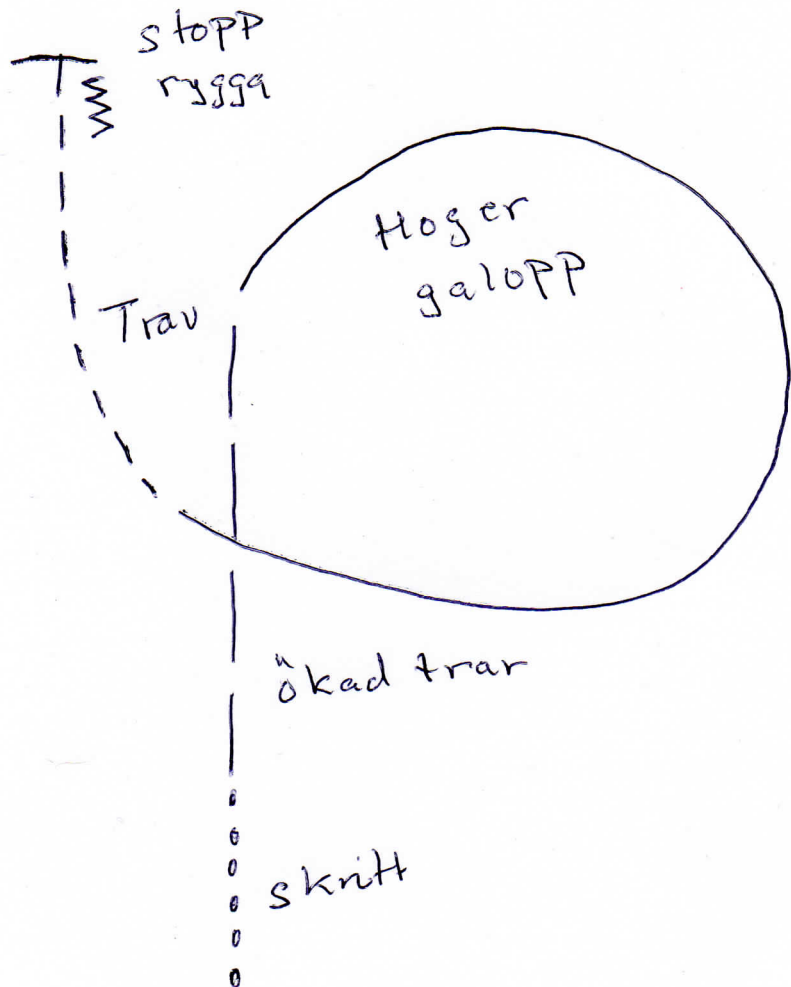 stopp
rygga
Hoger
galopp
Trav
ökad trav
skritt